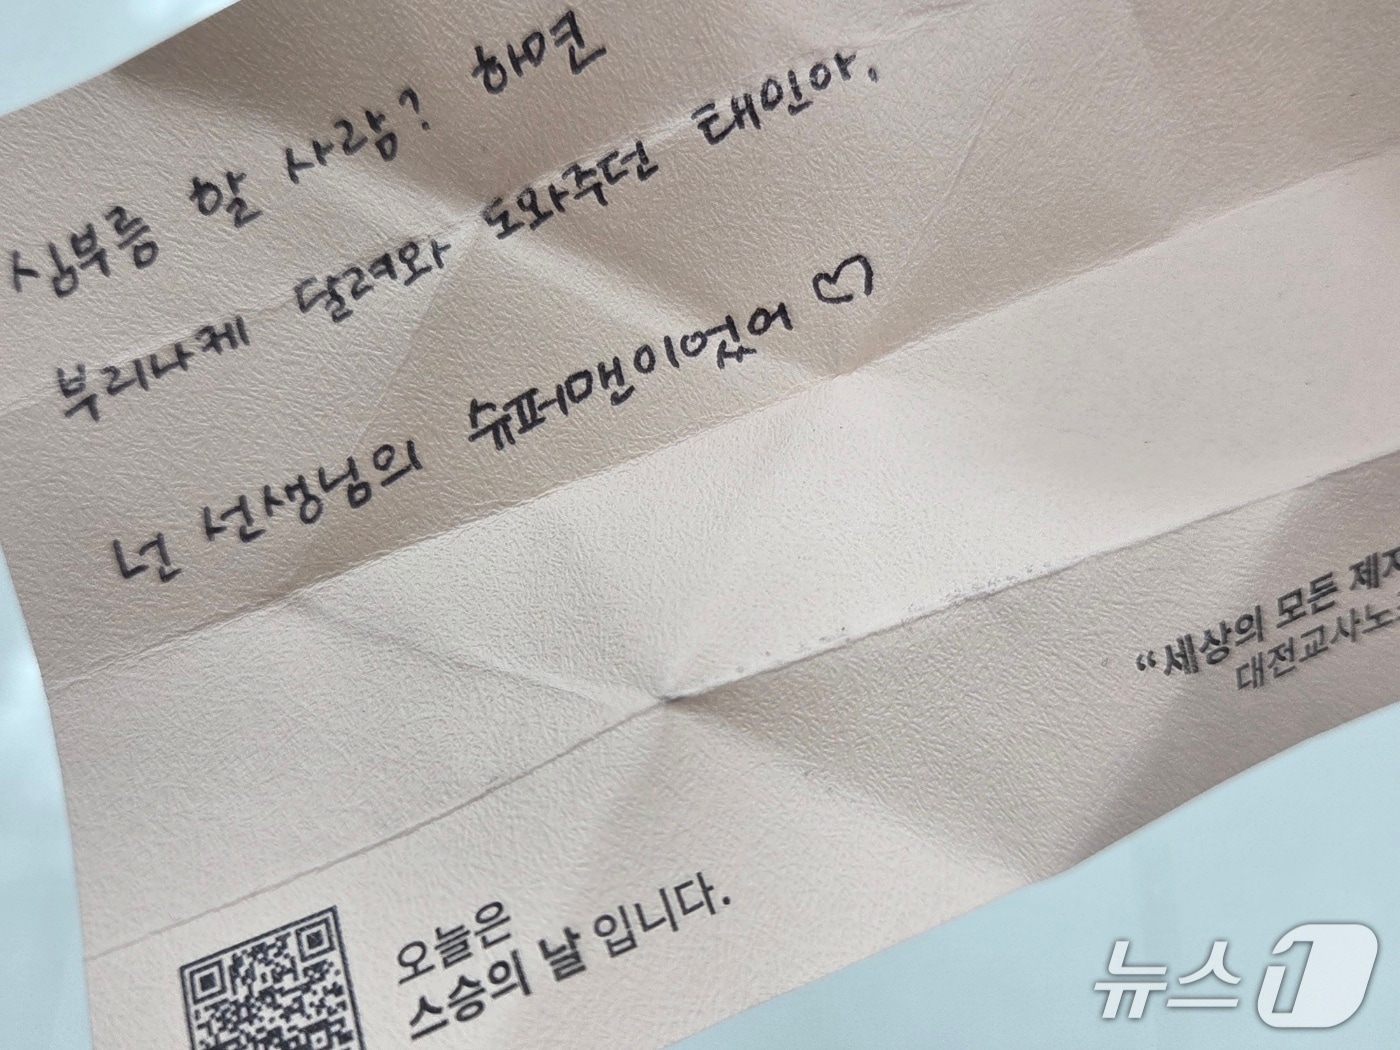 심부름 할 사람? 하면
부리나케 달려와 도와주던 태인아.
넌 선생님의 슈퍼맨이었어 ♡
“세상의 모든 제자
대전교사노
오늘은
스승의 날 입니다.
뉴스1